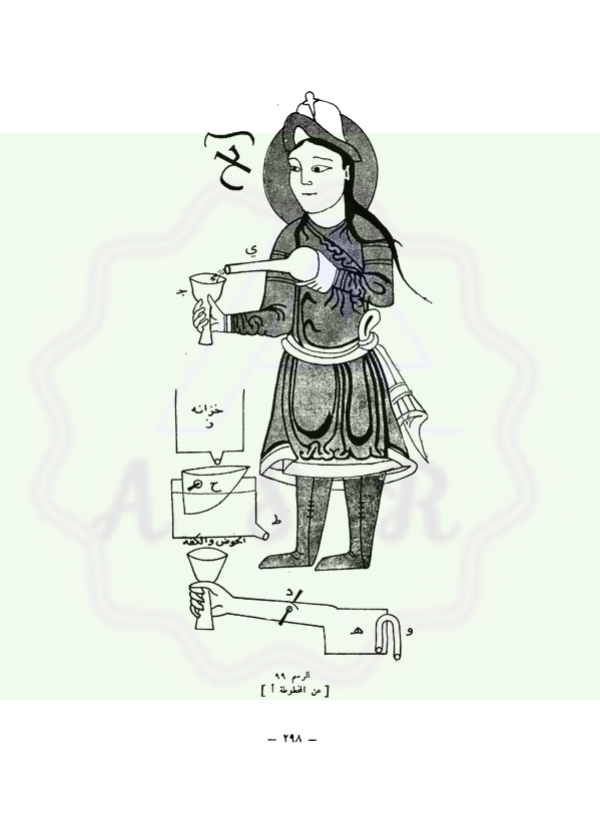 ي
ج
خزانه
ز
ح
ط
الحوض والكفه
د
و
هـ
الرسم ٩٩
[ عن المخطوطة أ ]
— ٢٩٨ —